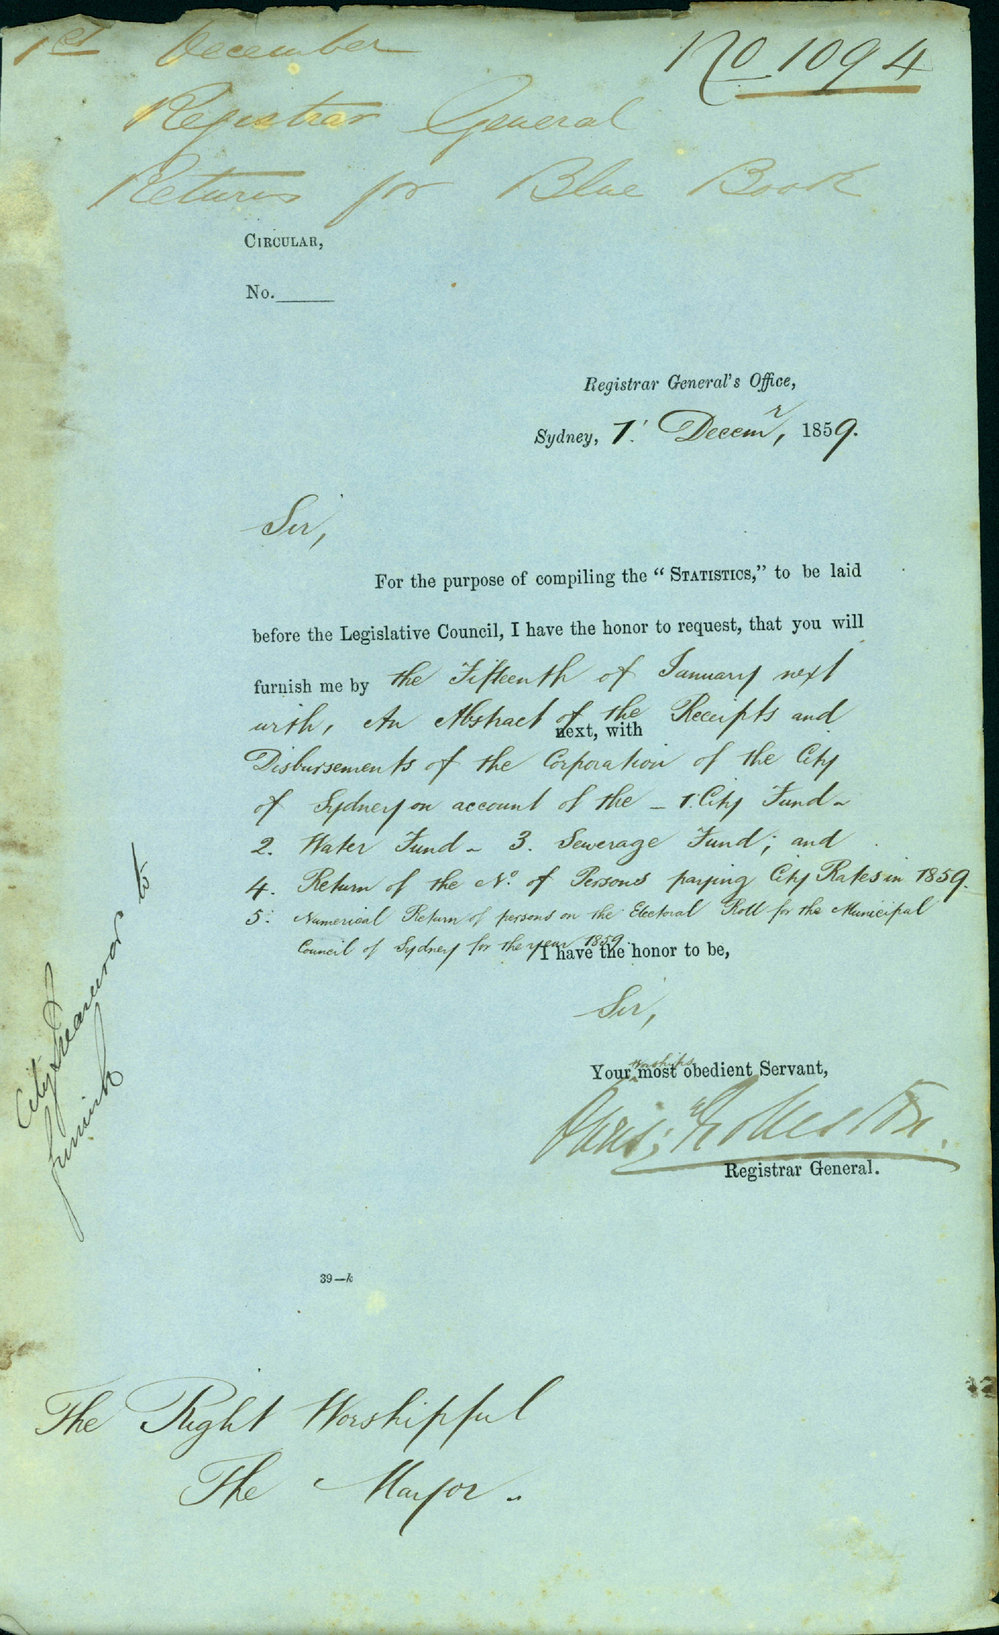 1st December
No 1094
Registrar General
Returns for Blue Book
CIRCULAR,
No.
Registrar General's Office,
Sydney, 1. Decemr, 1859.
Sir,
For the purpose of compiling the "STATISTICS," to be laid
before the Legislative Council, I have the honor to request, that you will
furnish me by the Fifteenth of January next
with, An Abstract of the Receipts and
next, with
Disbursements of the Corporation of the City
of Sydney on account of the – 1. City Fund –
2. Water Fund – 3. Sewerage Fund; and
4. Return of the No. of Persons paying City Rates in 1859.
5. Numerical Return of persons on the Electoral Roll for the Municipal
Council of Sydney for the year 1859.
I have the honor to be,
Sir,
Your worships most obedient Servant,
Chris: Rolleston.
Registrar General.
City Treasurer to
furnish
39—k
The Right Worshipful
The Mayor.